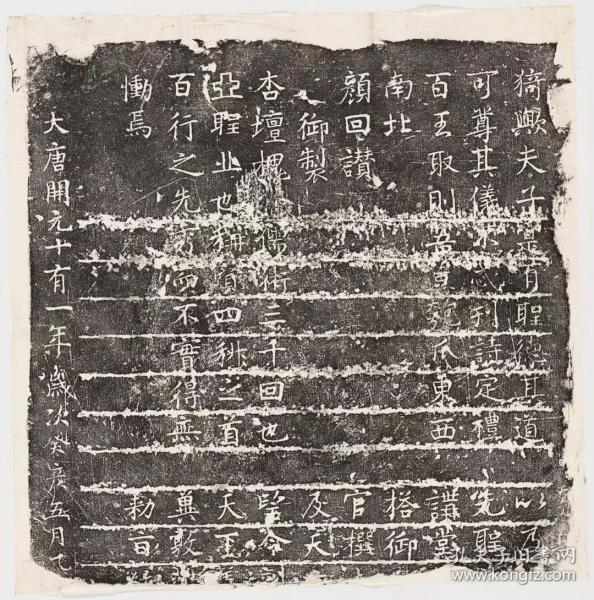 猗歟夫子實有聖德其道
可尊其儀不忒刪詩定禮
百王取則吾豈匏瓜東西
南北
顏回讚
御製
杏壇槐 儒術三千回也
亞聖 也稱 四科之首
百行之先 而不實得無
慟焉
大唐開元十有一年歲次癸亥五月
以
先聖
講堂
搭御
官撰
及天
天王
冀敦
勅旨
孔夫子旧书网
www.kongfz.com